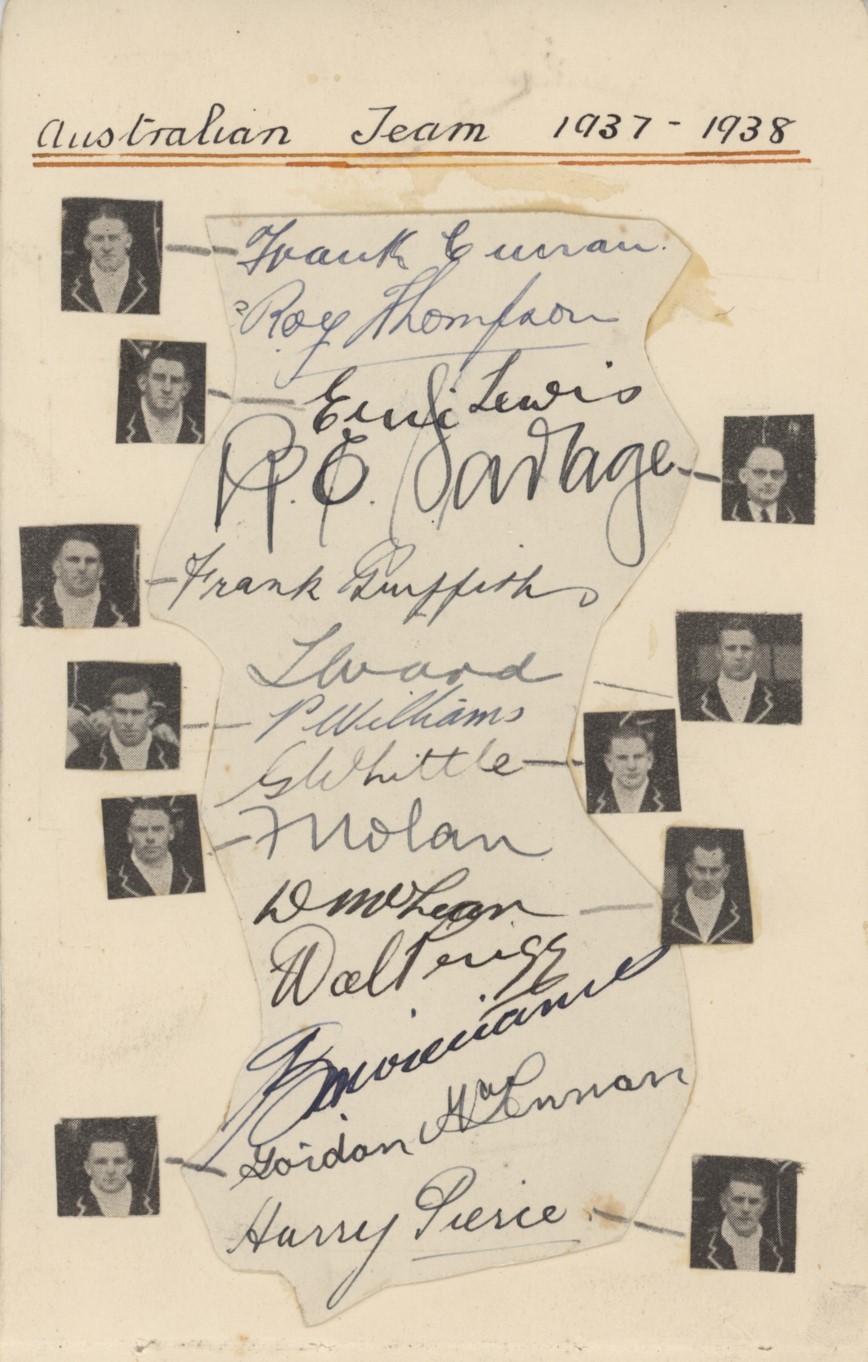 Australian Team 1937-1938
Frank Curran.
? Roy Thompson
Eric Lewis
R.E. Savage
Frank Griffiths
L Ward
P Williams
G Whittle
F Nolan
D McLean
Wal Prigg
Gordon McLennan
Harry Pierce